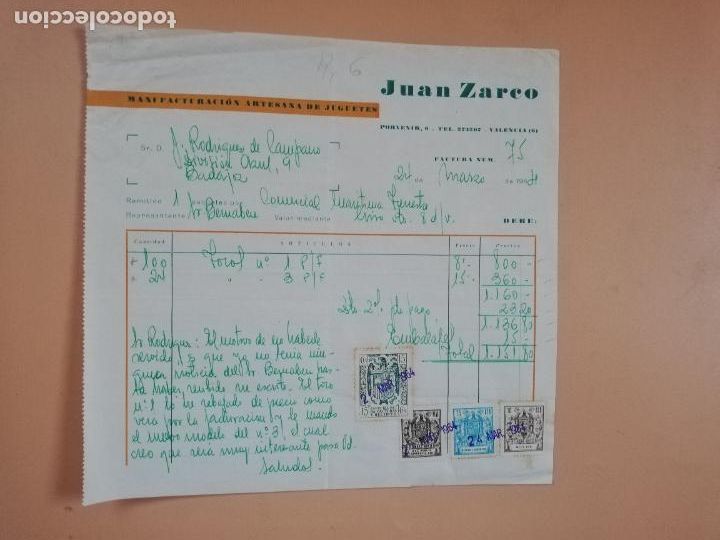 todocoleccion
Juan Zarco
MANUFACTURACIÓN ARTESANA DE JUGUETES
PORVENIR, 6 - TEL. 273207 - VALENCIA (6)
Sr. D. J. Rodriguez de Campano
División Azul, 9
Badajoz
FACTURA NUM. 75
24 de Marzo de 196
Remitido 1 Comercial Maritima Terrestre
Representante Sr Bernabeu Valor mediante giro 8 d/v.
DEBE:
Cantidad ARTICULOS Precio Pesetas
100 Toros nº 1 P/F 8'- 800 -
24 " " 3 P/F 15'- 360 -
1.160 -
Dto 2% p. pago 23 20
1.136 80
Embalaje 15 -
Total 1.151 80
Sr Rodriguez: El motivo de no haberle
servido es que ya no tenia nin-
guna noticia del Sr Bernabeu has-
ta haber recibido su escrito. El toro
nº 1 lo he rebajado de precio como
vera por la facturación y le mando
el nuevo modelo del nº 3, el cual
creo que sera muy interesante para Vd.
Saludos.
24 MAR 1964